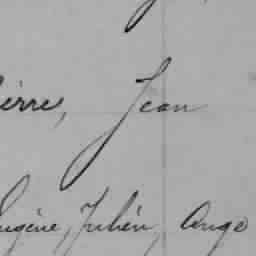 ierre, Jean
Eugène, Julien, Ange